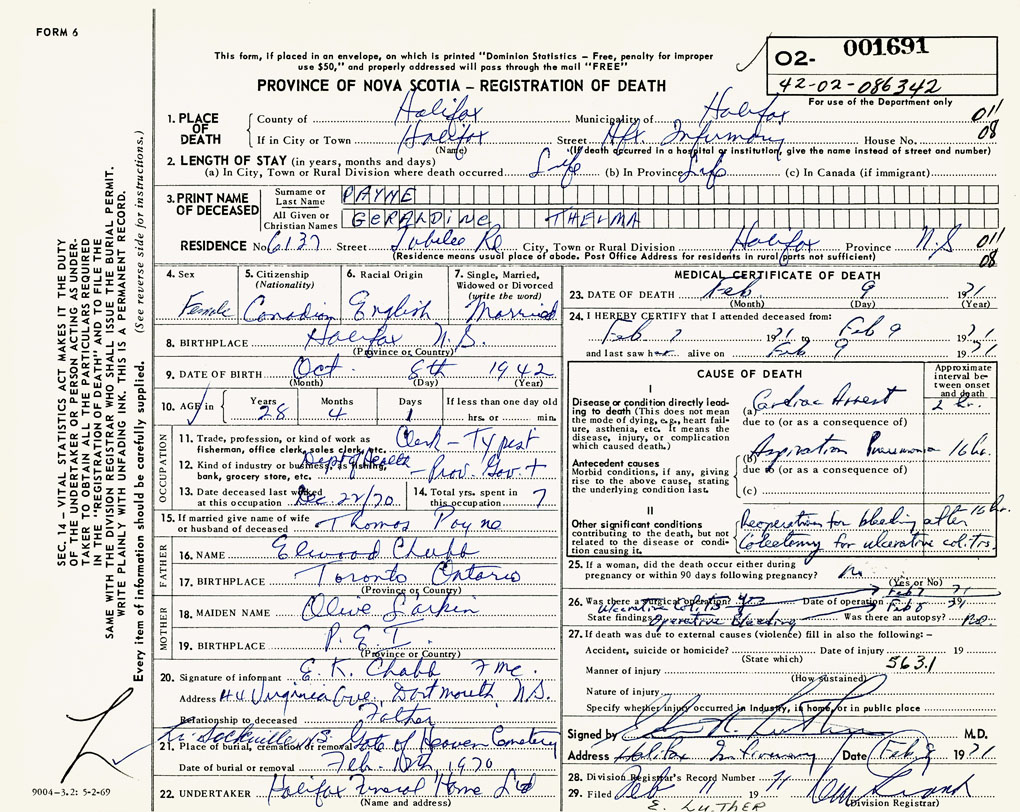 FORM 6
This form, if placed in an envelope, on which is printed "Dominion Statistics – Free, penalty for improper
use $50," and properly addressed will pass through the mail "FREE"
PROVINCE OF NOVA SCOTIA – REGISTRATION OF DEATH
O2- 001691
42-02-086342
For use of the Department only
1. PLACE OF DEATH
County of Halifax Municipality of Halifax 011
If in City or Town Halifax Street Hfx. Infirmary House No. 08
(Name) (If death occurred in a hospital or institution, give the name instead of street and number)
2. LENGTH OF STAY (in years, months and days)
(a) In City, Town or Rural Division where death occurred Life (b) In Province Life (c) In Canada (if immigrant)
3. PRINT NAME OF DECEASED
Surname or Last Name PAYNE
All Given or Christian Names GERALDINE THELMA
RESIDENCE No. 6137 Street Jubilee Rd City, Town or Rural Division Halifax Province N.S 011
(Residence means usual place of abode. Post Office Address for residents in rural parts not sufficient) 08
4. Sex Female
5. Citizenship (Nationality) Canadian
6. Racial Origin English
7. Single, Married, Widowed or Divorced (write the word) Married
8. BIRTHPLACE Halifax N.S.
(Province or Country)
9. DATE OF BIRTH Oct. 8th 1942
(Month) (Day) (Year)
10. AGE in Years 28 Months 4 Days 1 If less than one day old
hrs. or min.
OCCUPATION
11. Trade, profession, or kind of work as fisherman, office clerk, sales clerk, etc. Clerk – Typist
12. Kind of industry or business, as fishing, bank, grocery store, etc. Dept of Health – Prov. Gov't
13. Date deceased last worked at this occupation Dec 22/70
14. Total yrs. spent in this occupation 7
15. If married give name of wife or husband of deceased Thomas Payne
FATHER
16. NAME Elwood Chabb
17. BIRTHPLACE Toronto Ontario
(Province or Country)
MOTHER
18. MAIDEN NAME Olive Larkin
19. BIRTHPLACE P.E.I.
(Province or Country)
20. Signature of informant E. K. Chabb
Address 44 Virginia Ave, Dartmouth N.S.
Relationship to deceased Father
Sackville, N.S.
21. Place of burial, cremation or removal Gate of Heaven Cemetery
Date of burial or removal Feb. 1970
22. UNDERTAKER Halifax Funeral Home Ltd
(Name and address)
MEDICAL CERTIFICATE OF DEATH
23. DATE OF DEATH Feb. 9 1971
(Month) (Day) (Year)
24. I HEREBY CERTIFY that I attended deceased from:
Feb 7 1971 Feb 9 71
and last saw her alive on Feb 9 1971
CAUSE OF DEATH
Approximate interval between onset and death
I
Disease or condition directly leading to death (This does not mean the mode of dying, e.g., heart failure, asthenia, etc. It means the disease, injury, or complication which caused death.)
(a) Cardiac Arrest 2 hr.
due to (or as a consequence of)
Antecedent causes
Morbid conditions, if any, giving rise to the above cause, stating the underlying condition last.
(b) Aspiration Pneumonia 16 hr.
due to (or as a consequence of)
(c)
II
Other significant conditions contributing to the death, but not related to the disease or condition causing it.
Reoperation for bleeding after 16 hr.
Colectomy for ulcerative colitis
25. If a woman, did the death occur either during pregnancy or within 90 days following pregnancy? No
(Yes or No)
Feb 7 71
26. Was there a surgical operation? yes Date of operation Feb 8 1971
State findings Ulcerative Colitis Operative Bleeding Was there an autopsy?
27. If death was due to external causes (violence) fill in also the following: –
Accident, suicide or homicide? Date of injury 19
(State which)
563.1
Manner of injury
(How sustained)
Nature of injury
Specify whether injury occurred in industry, in home, or in public place
Signed by M.D.
Address Halifax Infirmary Date Feb 9 1971
28. Division Registrar's Record Number 71
29. Filed Feb 11 1971
Division Registrar
E. LUTHER
SEC. 14 – VITAL STATISTICS ACT MAKES IT THE DUTY
OF THE UNDERTAKER OR PERSON ACTING AS UNDER-
TAKER TO OBTAIN ALL THE PARTICULARS REQUIRED
IN THE "REGISTRATION OF DEATH" AND TO FILE THE
SAME WITH THE DIVISION REGISTRAR WHO SHALL ISSUE THE BURIAL PERMIT.
WRITE PLAINLY WITH UNFADING INK. THIS IS A PERMANENT RECORD.
Every item of information should be carefully supplied. (See reverse side for instructions.)
9004-3.2: 5-2-69